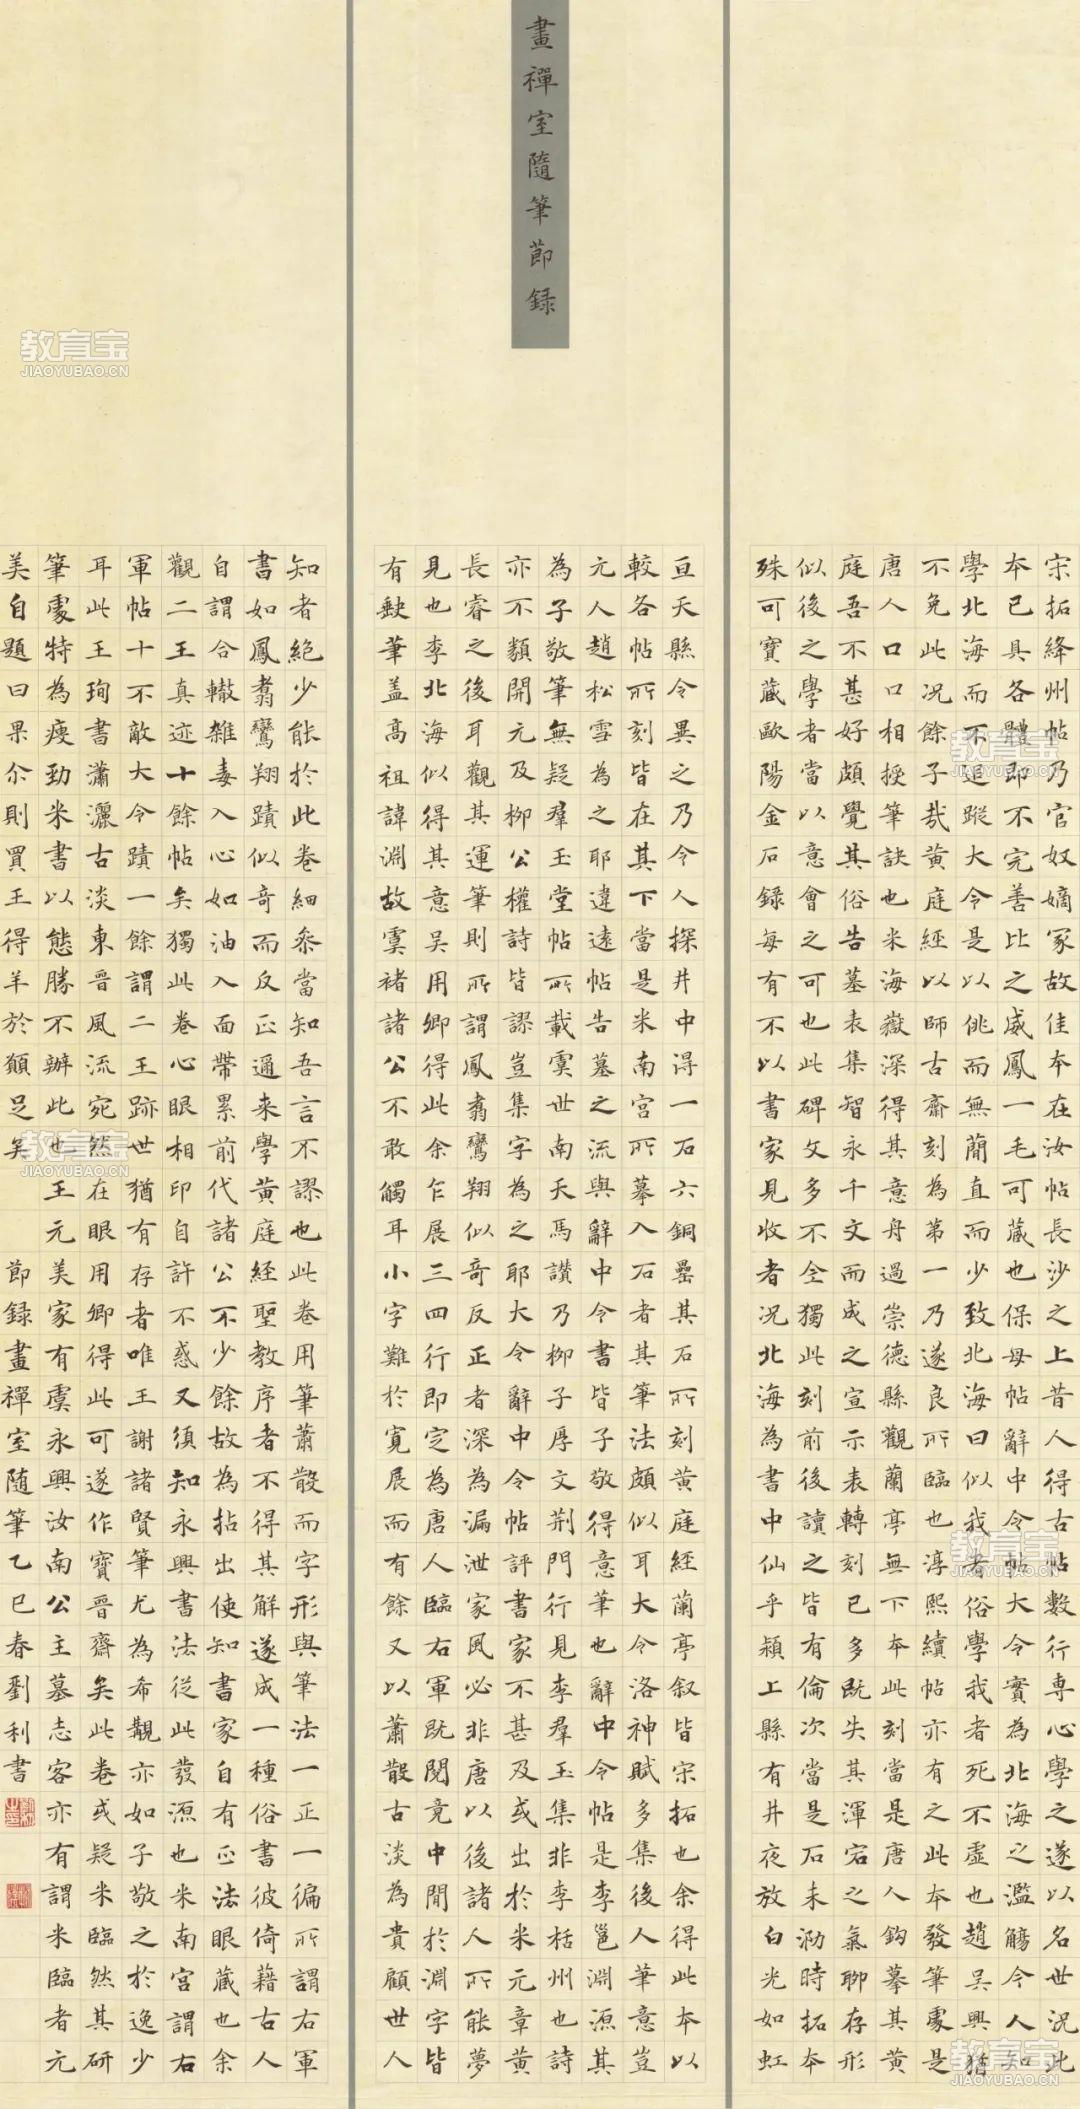 畫禪室隨筆節録
宋拓絳州帖乃官奴嫡冢故佳本在汝帖長沙之上昔人得古帖數行専心學之遂以名世況此
本已具各體即不完善比之威鳳一毛可蔵也保母帖辭中令帖大令實為北海之濫觴今人知
學北海而不追蹤大令是以佻而無簡直而少致北海曰似我者俗學我者死不虛也趙吳興猶
不免此况餘子㦲黄庭經以師古齋刻為第一乃遂良所臨也淳熙續帖亦有之此本發筆處是
唐人口口相授筆訣也米海嶽深得其意舟過崇德縣觀蘭亭無下本此刻當是唐人鈎摹其黄
庭吾不甚好頗覺其俗告墓表集智永千文而成之宣示表轉刻已多既失其渾宕之氣聊存形
似後之學者當以意會之可也此碑文多不全獨此刻前後讀之皆有倫次當是石未泐時拓本
殊可寶蔵歐陽金石録每有不以書家見收者况北海為書中仙乎潁上縣有井夜放白光如虹
亘天縣令異之乃令人探井中得一石六銅罍其石所刻黄庭經蘭亭叙皆宋拓也余得此本以
較各帖所刻皆在其下當是米南宮所摹入石者其筆法頗似耳大令洛神賦多集後人筆意豈
元人趙松雪為之耶違遠帖告墓之流與辭中令書皆子敬得意筆也辭中令帖是李邕淵源其
為子敬筆無疑羣玉堂帖所載虞世南天馬讃乃柳子厚文荆門行見李羣玉集非李栝州也詩
亦不類開元及柳公權詩皆謬豈集字為之耶大令辭中令帖評書家不甚及或出於米元章黄
長睿之後耳觀其運筆則所謂鳳翥鸞翔似奇反正者深為漏泄家風必非唐以後諸人所能夢
見也李北海似得其意吴用卿得此余乍展三四行即定為唐人臨右軍既閱竟中間於淵字皆
有缺筆盖高祖諱淵故虞褚諸公不敢觸耳小字難於寛展而有餘又以蕭散古淡為貴顧世人
知者絶少能於此卷細叅當知吾言不謬也此卷用筆蕭散而字形與筆法一正一徧所謂右軍
書如鳳翥鸞翔蹟似奇而反正通來學黄庭經聖教序者不得其解遂成一種俗書彼倚藉古人
自謂合轍雑毒入心如油入面帶累前代諸公不少餘故為拈出使知書家自有正法眼蔵也余
觀二王真迹十餘帖矣獨此卷心眼相印自許不惑又須知永興書法從此發源也米南宮謂右
軍帖十不敵大令蹟一餘謂二王跡世猶有存者唯王謝諸賢筆尤為希覯亦如子敬之於逸少
耳此王珣書瀟灑古淡東晋風流宛然在眼用卿得此可遂作寶晋齋矣此卷或疑米臨然其研
筆處特為痩勁米書以態勝不辦此也王元美家有虞永興汝南公主墓志客亦有謂米臨者元
美自題曰果尒則買王得羊於願足矣
節録畫禪室随筆乙巳春劉利書
教育宝
JIAOYUBAO.CN
教育宝
JIAOYUBAO.CN
教育宝
JIAOYUBAO.CN
教育宝
JIAOYUBAO.CN
教育宝
JIAOYUBAO.CN